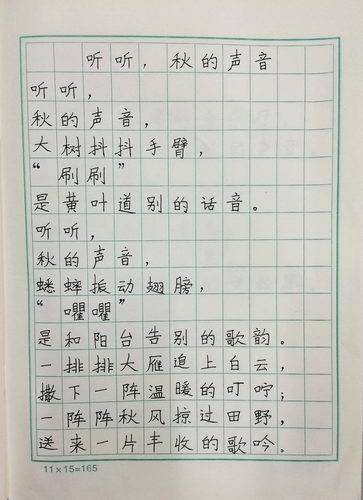 听听，秋的声音
听听，
秋的声音，
大树抖抖手臂，
“刷刷”
是黄叶道别的话音。
听听，
秋的声音，
蟋蟀振动翅膀，
“㘗㘗”
是和阳台告别的歌韵。
一排排大雁追上白云，
撒下一阵温暖的叮咛；
一阵阵秋风掠过田野，
送来一片丰收的歌吟。
11×15=165